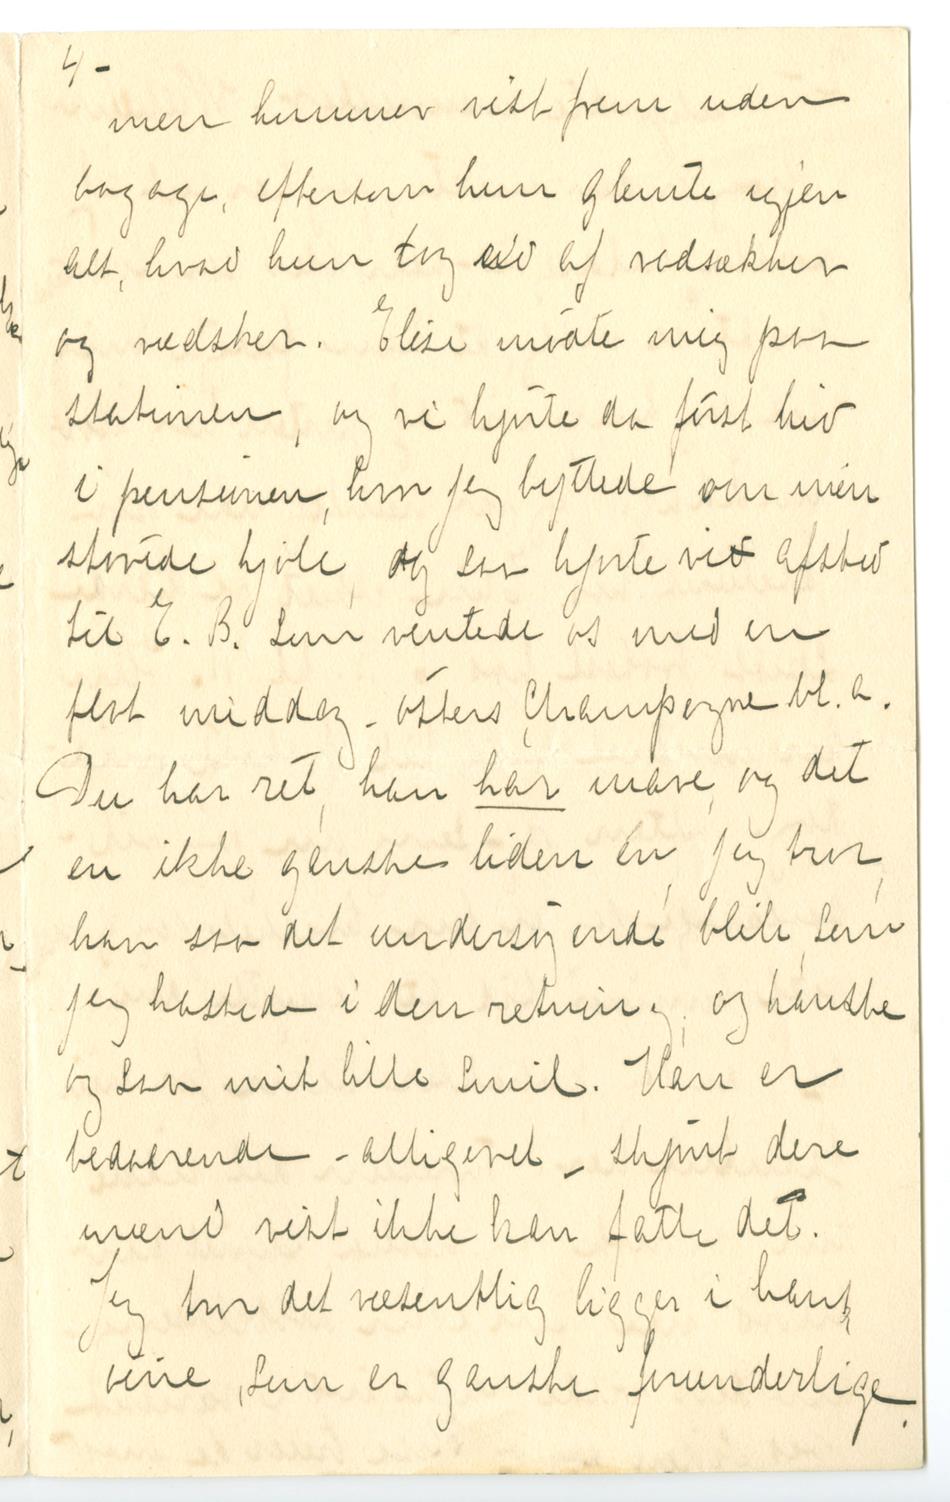 4-
men kommer vist frem uden
bagage, eftersom hun glemte igjen
alt, hvad hun tog ud af vadsækker
og vædsker. Elise mødte mig paa
stationen, og vi kjørte da først hid
i pensionen, hvor jeg byttede om min
støvede kjole, og saa kjørte vi afsted
til E. B. som ventede os med en
flot middag - østers Champagne bl. a.
Du har ret, han har mave, og det
en ikke ganske liden én, jeg tror,
han saa det undersøgende blik, som
jeg kastede i den retning, og kanske
og saa mit lille smil. Han er
bedaarende - alligevel - skjønt dere
mænd vist ikke kan fatte det.
Jeg tror det væsentlig ligger i hans
øine, som er ganske forunderlige.